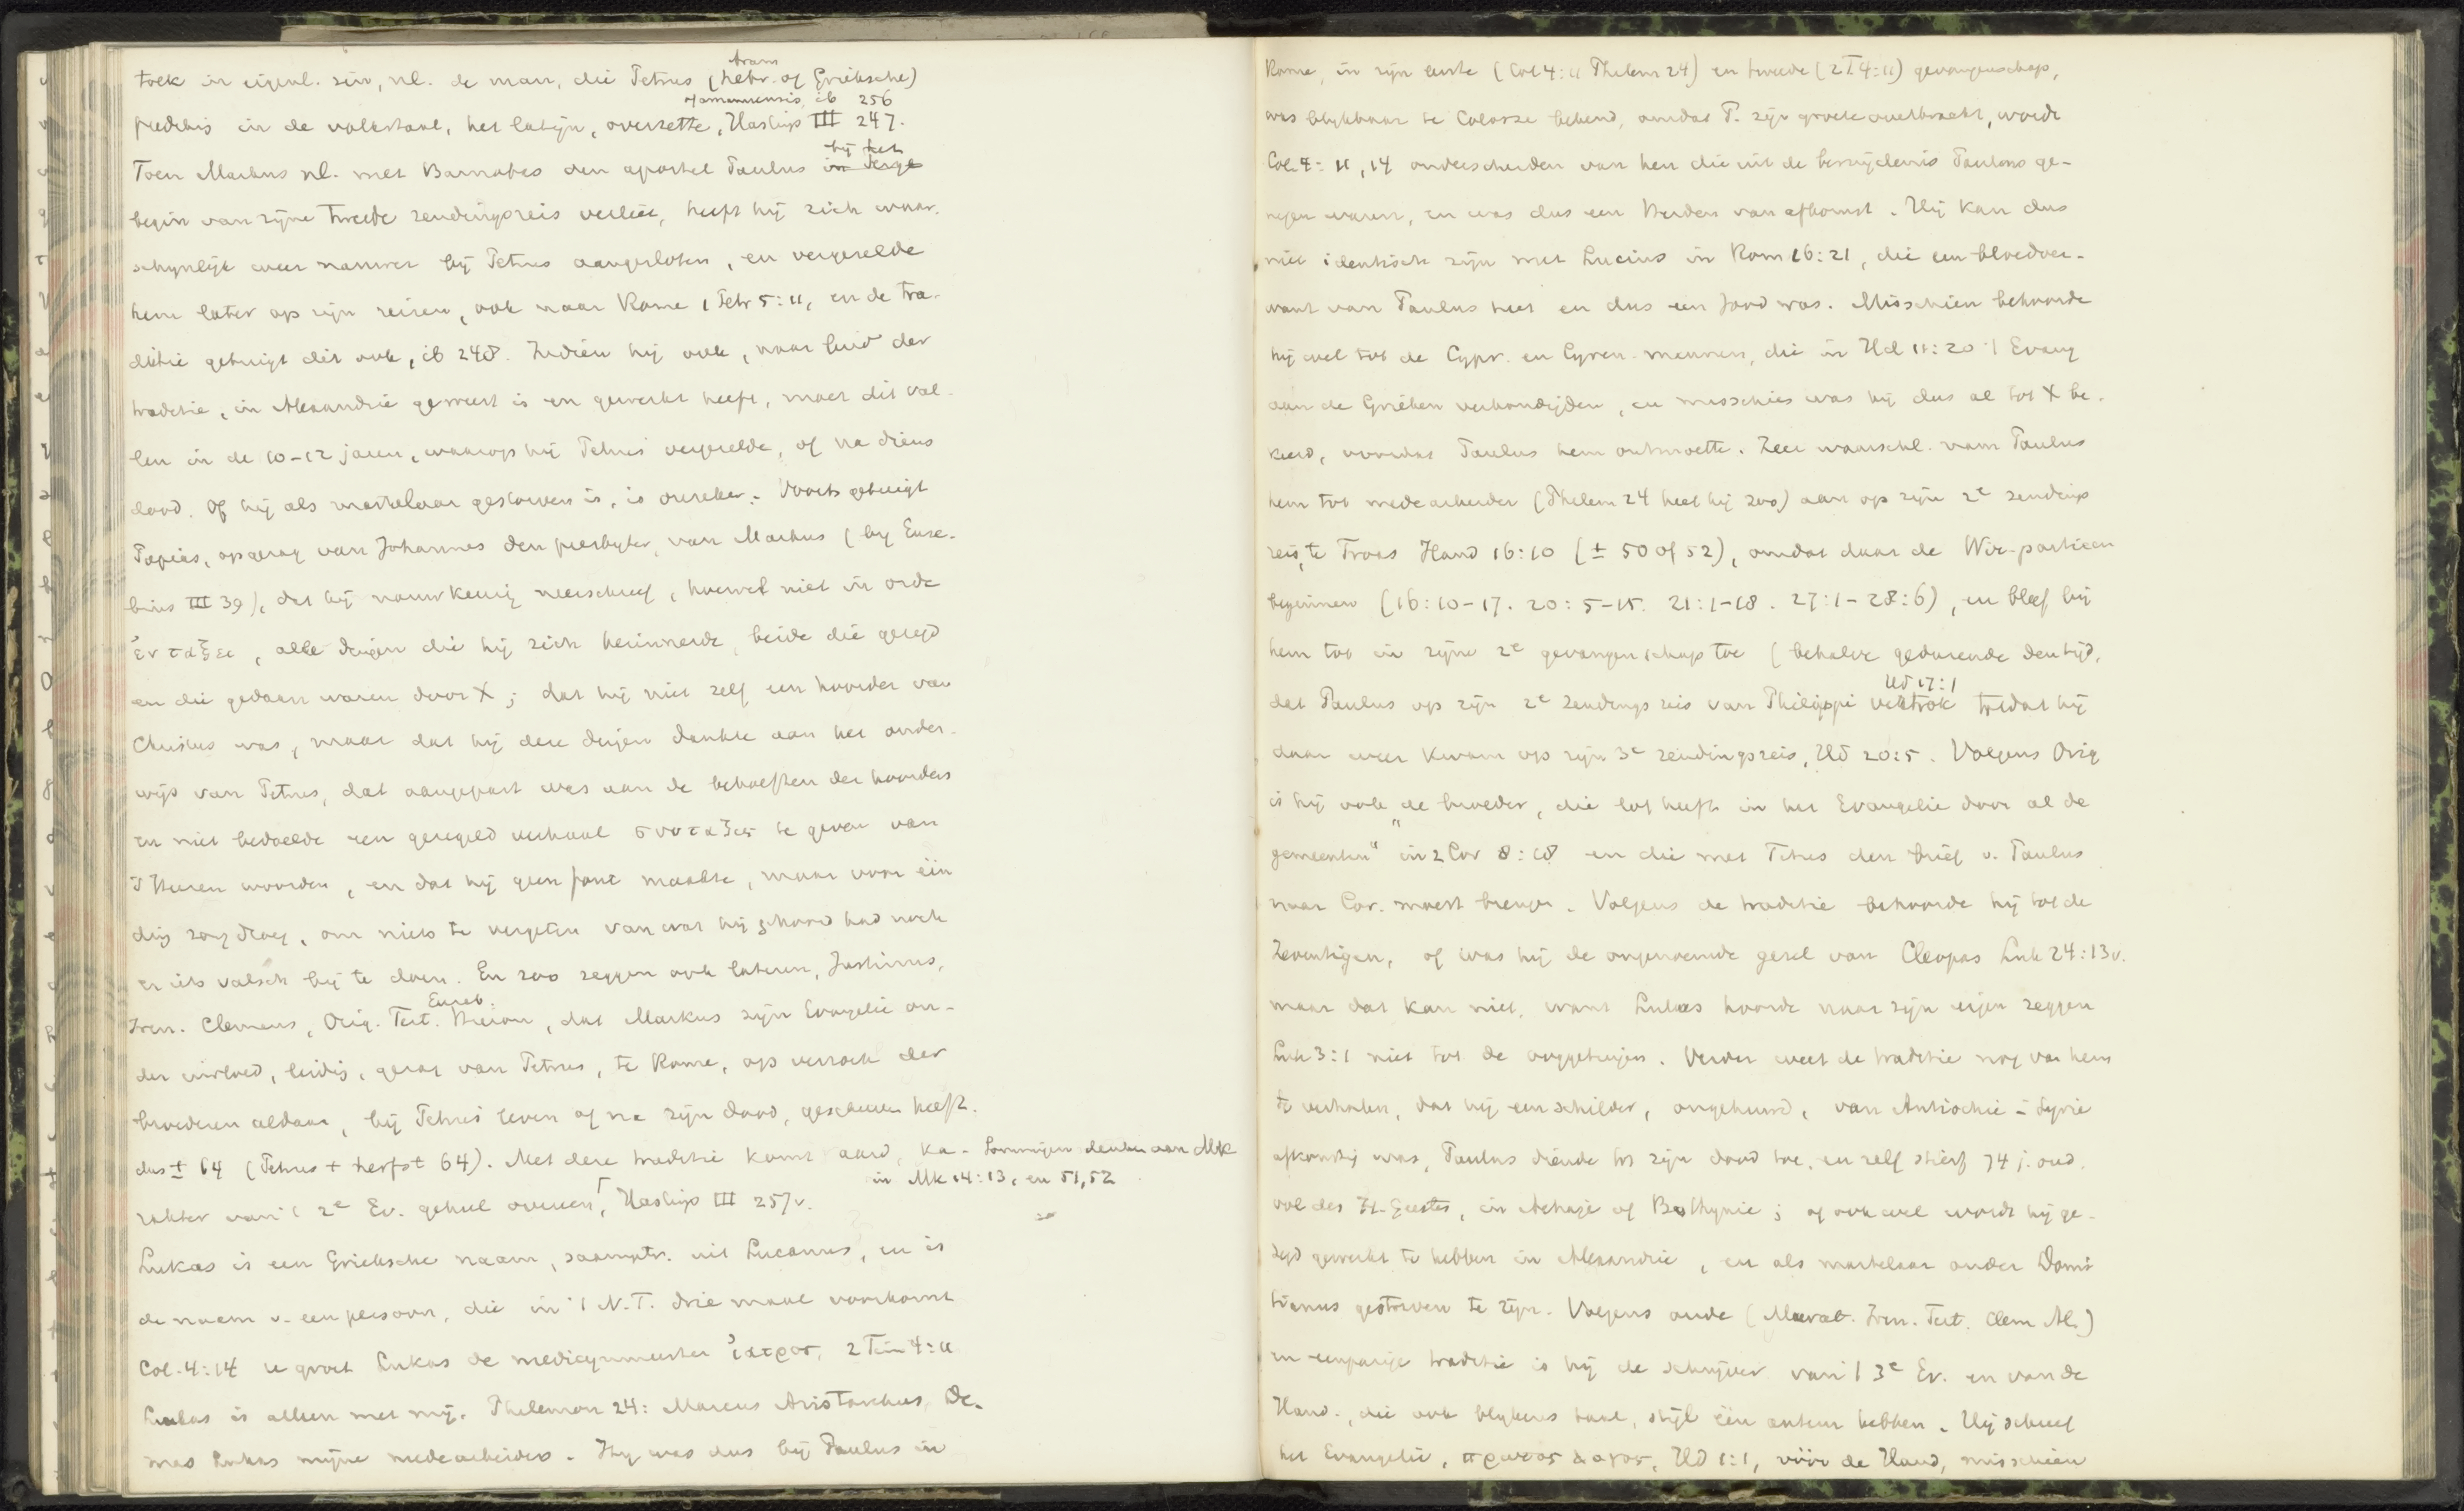 tolk in eigenl. zin, nl. de man, die Petrus (hebr. of Grieksche)
aram
prediking in de volkstaal, het latijn, overzette, Hastings III 247.
of amanuensis, ib 256
Toen Markus nl. met Barnabas den apostel Paulus in Perge
bij het
begin van zijne tweede zendingsreis verliet, heeft hij zich waar-
schijnlijk weer nauwer bij Petrus aangesloten, en vergezelde
hem later op zijn reizen, ook naar Rome 1 Petr 5:11, en de tra-
ditie getuigt dit ook, ib 248. Indien hij ook, naar luid der
traditie, in Alexandrië geweest is en gewerkt heeft, moet dit val-
len in de 10-12 jaren, waarop hij Petrus vergezelde, of na diens
dood. Of hij als martelaar gestorven is, is onzeker. Voorts getuigt
Papias, op gezag van Johannes den presbyter, van Markus (by Euse-
bius III 39), dat hij nauwkeurig neerschreef, hoewel niet in orde
ἐν ταξει, alle dingen die hij zich herinnerde, beide die gezegd
en die gedaan waren door X; dat hij niet zelf een hoorder van
Christus was, maar dat hij deze dingen dankte aan het onder-
wijs van Petrus, dat aangepast was aan de behoeften der hoorders
en niet bedoelde een geregeld verhaal συνταξις te geven van
's Heeren woorden, en dat hij geen fout maakte, maar voor één
ding zorg droeg, om niets te vergeten van wat hij gehoord had noch
er iets valsch bij te doen. En zoo zeggen ook lateren, Justinus,
Iren. Clemens, Orig. Tert. Hieron, dat Markus zijn Evangelie on-
Euseb.
der invloed, leiding, gezag van Petrus, te Rome, op verzoek der
broederen aldaar, bij Petrus' leven of na zijn dood, geschreven heeft.
dus ± 64 (Petrus + herfst 64). Met deze traditie komt aard, ka-
Sommigen denken aan Mk
in Mk 14:13, en 51,52
rakter van 't 2e Ev. geheel overeen, Hastings III 257v.
Lukas is een Grieksche naam, saamgetr. uit Lucanus, en is
de naam v. een persoon, die in 't N.T. drie maal voorkomt
Col. 4:14 u groet Lukas de medicynmeester ἰατρος, 2 Tim 4:11
Lukas is alleen met mij. Philemon 24: Marcus Aristarchus, De-
mas Lukas mijne medearbeiders. Hij was dus bij Paulus in
Rome, in zijn eerste (Col 4:11 Philem 24) en tweede (2T4:11) gevangenschap,
was blijkbaar te Colosse bekend, omdat P. zijn groete overbracht, wordt
Col. 4:11,14 onderscheiden van hen die uit de besnijdenis Paulus ge-
negen waren, en was dus een Heiden van afkomst. Hij kan dus
niet identisch zijn met Lucius in Rom 16:21, die een bloedver-
want van Paulus heet en dus een Jood was. Misschien behoorde
hij wel tot de Cypr. en Cyren. mannen, die in Hd 11:20 't Evang
aan de Grieken verkondigden, en misschien was hij dus al tot X be-
keerd, voordat Paulus hem ontmoette. Zeer waarschl. nam Paulus
hem tot medearbeider (Philem 24 heet hij zoo) aan op zijn 2e zendings
reis, te Troas Hand 16:10 (± 50 of 52), omdat daar de Wir-partieen
beginnen (16:10-17. 20:5-15. 21:1-18. 27:1-28:6), en bleef bij
hem tot in zijne 2e gevangenschap toe (behalve gedurende den tijd,
dat Paulus op zijn 2e zendingsreis van Philippi vertrok totdat hij
Hd 17:1
daar weer kwam op zijn 3e zendingsreis, Hd 20:5. Volgens Orig
is hij ook „de broeder, die lof heeft in het Evangelie door al de
gemeenten" in 2 Cor 8:18 en die met Titus den brief v. Paulus
naar Cor. moest brengen. Volgens de traditie behoorde hij tot de
Zeventigen, of was hij de ongenoemde gezel van Cleopas Luk 24:13v.
maar dat kan niet, want Lukas hoorde naar zijn eigen zeggen
Luk 3:1 niet tot de ooggetuigen. Verder weet de traditie nog van hem
te verhalen, dat hij een schilder, ongehuwd, van Antiochië - Syrie
afkomstig was, Paulus diende tot zijn dood toe, en zelf stierf 74 j. oud,
vol des H. Geestes, in Achaje of Bithynie; of ook wel wordt hij ge-
zegd gewerkt te hebben in Alexandrie, en als martelaar onder Domi-
tianus gestorven te zijn. Volgens oude (Murat. Iren. Tert. Clem Al.)
en eenparige traditie is hij de schrijver van 't 3e Ev. en van de
Hand., die ook blijkens taal, stijl één auteur hebben. Hij schreef
het Evangelie, πρωτος λογος, Hd 1:1, vóór de Hand, misschien